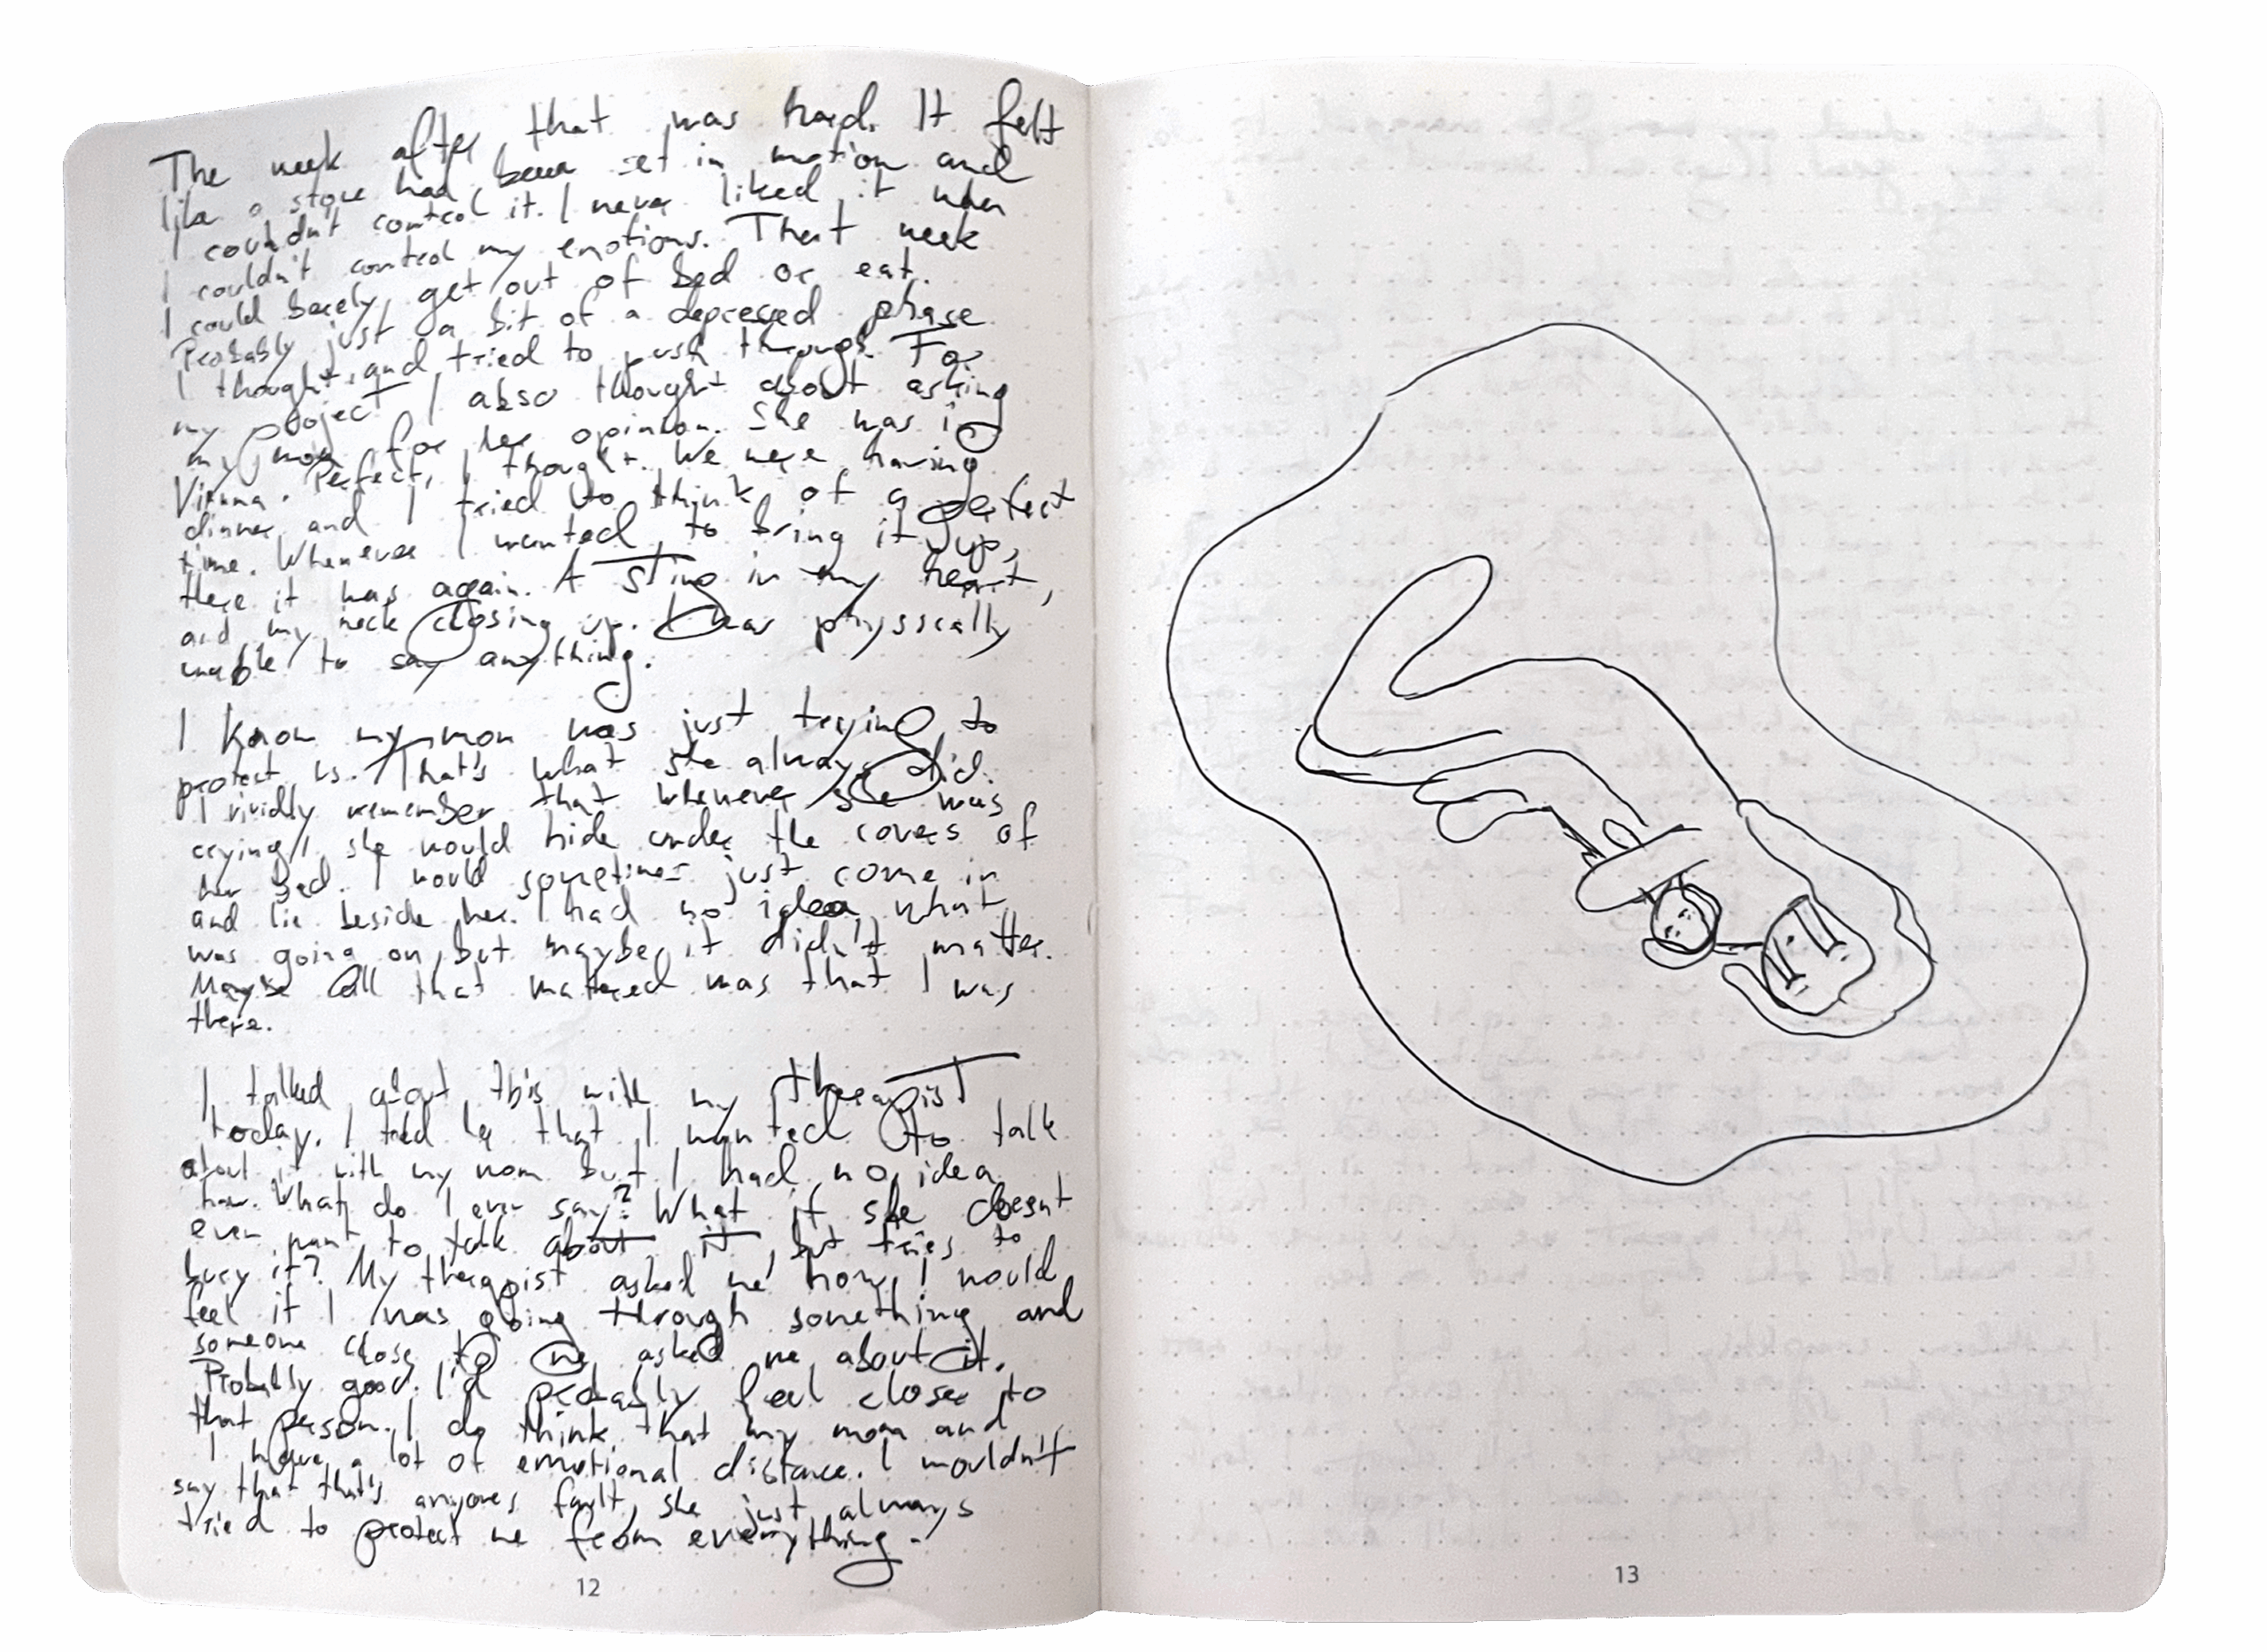 The week after that was hard. It felt
like a stone had been set in motion and
I couldn't control it. I never liked it when
I couldn't control my emotions. That week
I could barely get out of bed or eat.
Probably just a bit of a depressed phase
I thought and tried to push through. For
my project I also thought about asking
my mom for her opinion. She was in
Vienna. Perfect, I thought. We were having
dinner and I tried to think of a perfect
time. Whenever I wanted to bring it up,
there it was again. A sting in my heart,
and my neck closing up. I was physically
unable to say anything.
I know my mom was just trying to
protect us. That's what she always did.
I vividly remember that whenever she was
crying, she would hide under the covers of
her bed. I would sometimes just come in
and lie beside her. I had no idea what
was going on, but maybe it didn't matter.
Maybe all that mattered was that I was
there.
I talked about this with my therapist
today. I told her that I wanted to talk
about it with my mom but I had no idea
how. What do I even say? What if she doesnt
even want to talk about it, but tries to
bury it? My therapist asked me how I would
feel if I was going through something and
someone close to me asked me about it.
Probably good. I'd probably feel closer to
that person. I do think that my mom and
I have a lot of emotional distance. I wouldn't
say that that's anyones fault, she just always
tried to protect me from everything.
12
13